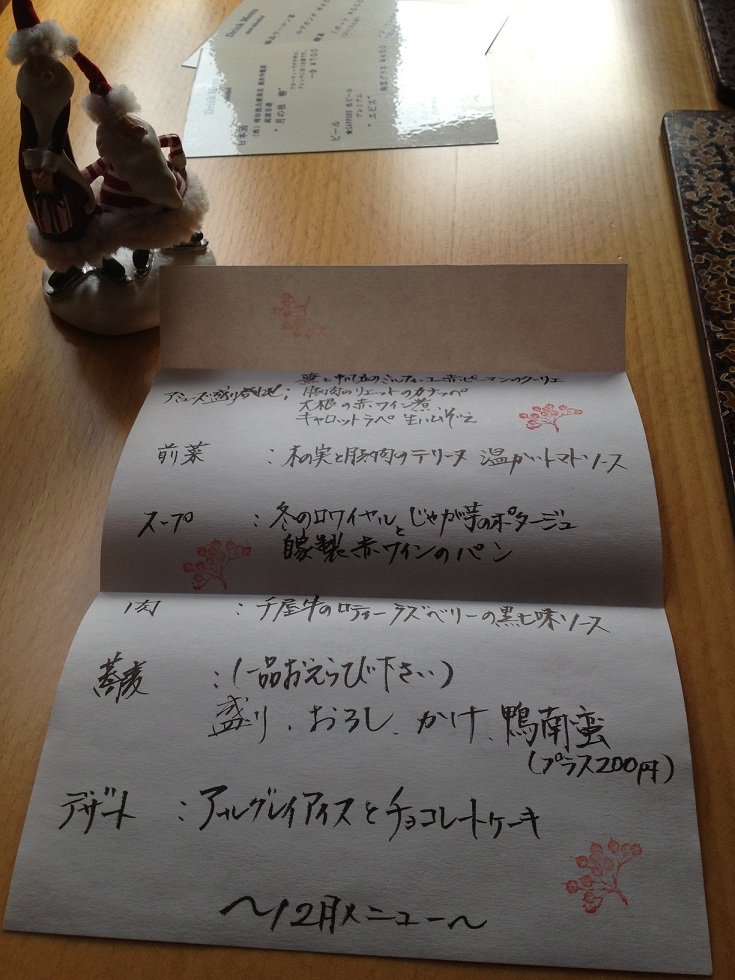 Drink Menu
日本酒
"月の桂 柳"
一合 ¥700
ビール
プレミアム
"エビス"
アミューズ盛り合わせ;
のミルフィーユ 赤ピーマンのクーリ
豚肉のリエットのカナッペ
大根の赤ワイン煮
キャロットラペ 生ハム添え
前菜 : 木の実と豚肉のテリーヌ 温かいトマトソース
スープ : 冬のロワイヤルとじゃが芋のポタージュ
自家製赤ワインのパン
肉 : 千屋牛のロティー ラズベリーの黒七味ソース
蕎麦 : (一品おえらび下さい)
盛り、おろし、かけ、鴨南蛮
(プラス200円)
デザート : アールグレイアイスとチョコレートケーキ
〜12月メニュー〜